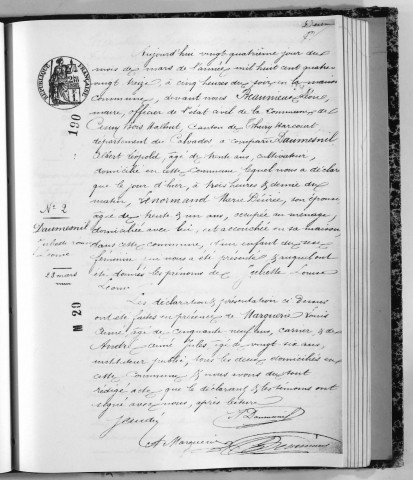 Aujourd'hui vingt quatrième jour du
mois de mars de l'année mil huit cent quatre
vingt treize, à cinq heures du soir, en la maison
commune, devant nous Beaumeux
maire, officier de l'état civil de la Commune de
Cesny Bois Halbout, Canton de Thury Harcourt
département du Calvados a comparu Daumesnil
Albert Léopold, âgé de trente ans, cultivateur,
domicilié en cette commune. Lequel nous a déclaré
que le jour d'hier, à trois heures & demie du
matin, Lenormand Marie Désirée, son épouse
âgée de trente & un ans, occupée au ménage,
domiciliée avec lui, est accouchée en sa maison
dans cette commune, d'un enfant du sexe
féminin qui nous a été présenté & auquel ont
été donnés les prénoms de Juliette Louise
Léonie
Les déclaration & présentation ci dessus
ont été faites en présence de Marguerie Louis
Aimé, âgé de cinquante neuf ans, carrier & de
André Aimé Jules âgé de vingt six ans,
instituteur public, tous les deux domiciliés en
cette commune & nous avons du tout
rédigé acte que le déclarant & les témoins ont
signé avec nous, après lecture
A. Daumesnil
A Marguerie
RÉPUBLIQUE FRANÇAISE
190
N° 2
Daumesnil
Juliette Louise
Léonie
23 mars
M 20